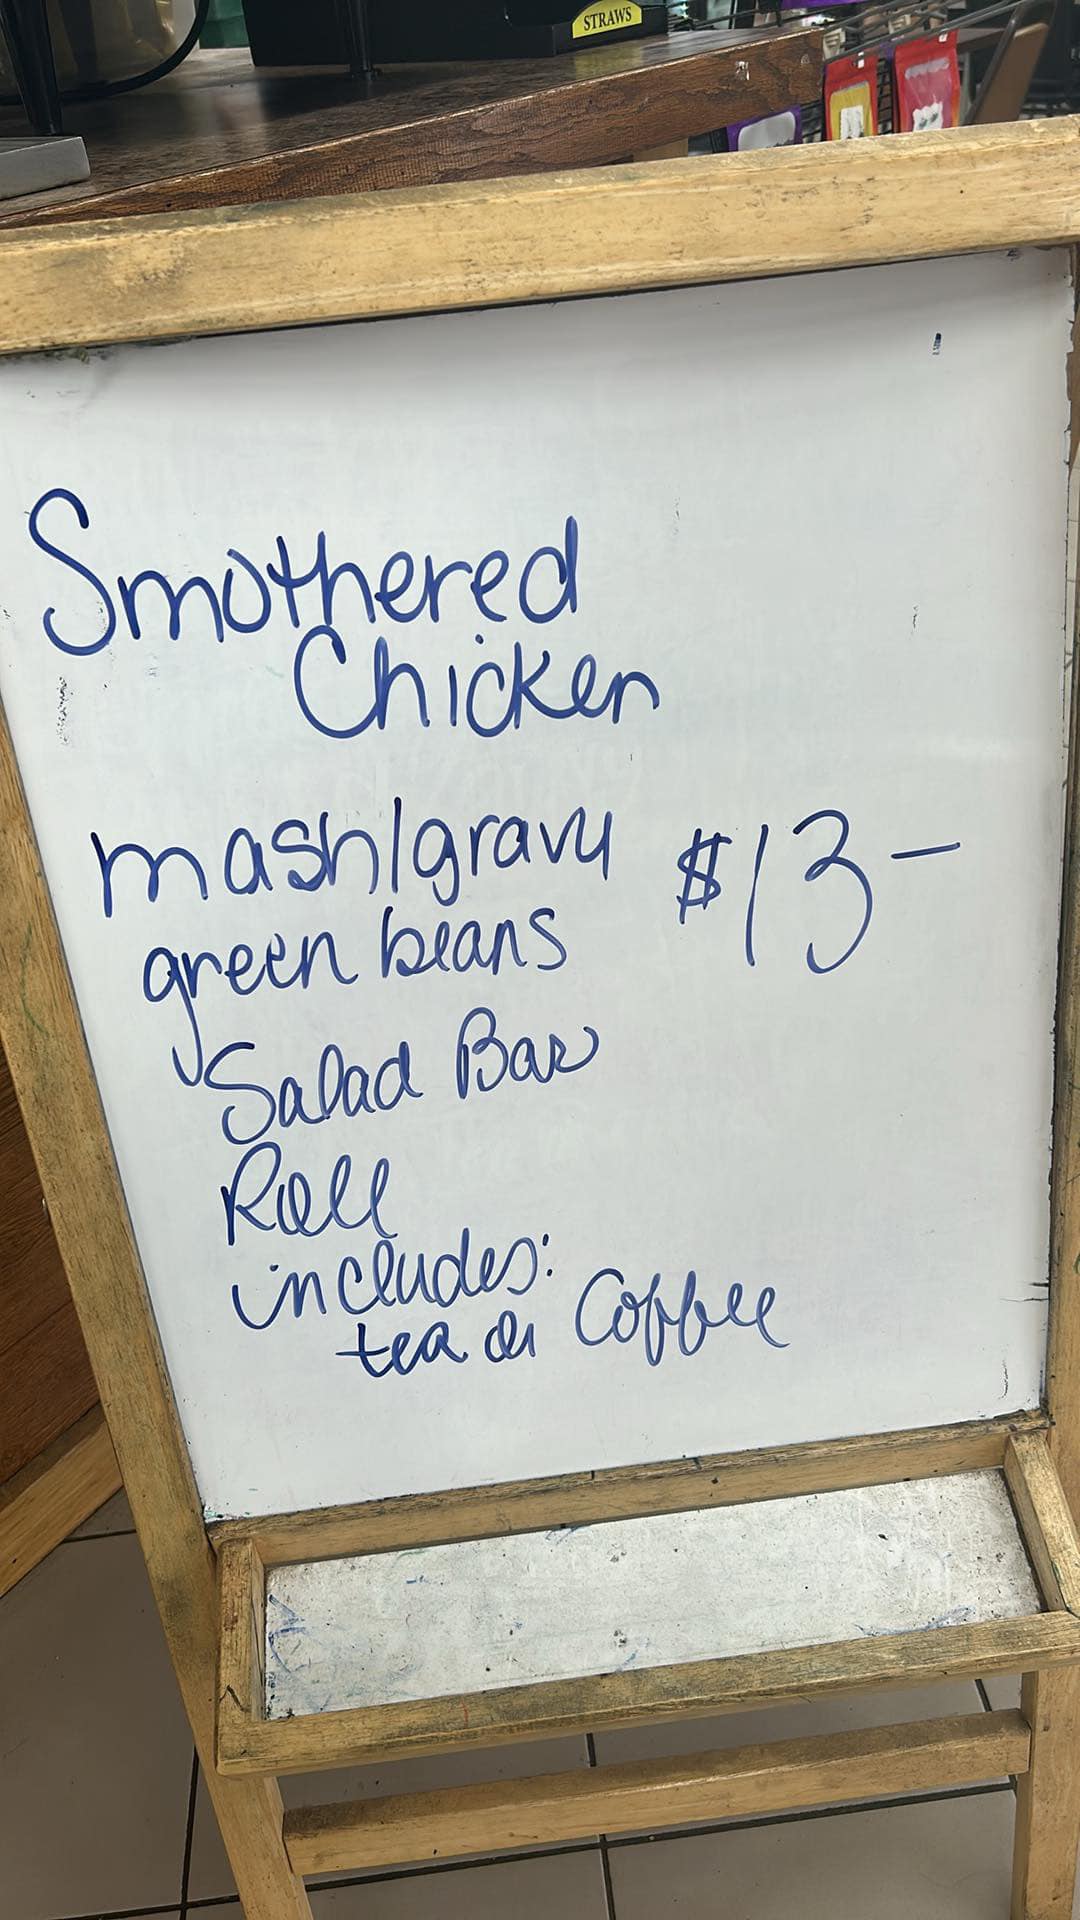 STRAWS
Smothered
Chicken
mash/gravy
$13-
green beans
Salad Bar
Roll
includes:
tea or Coffee